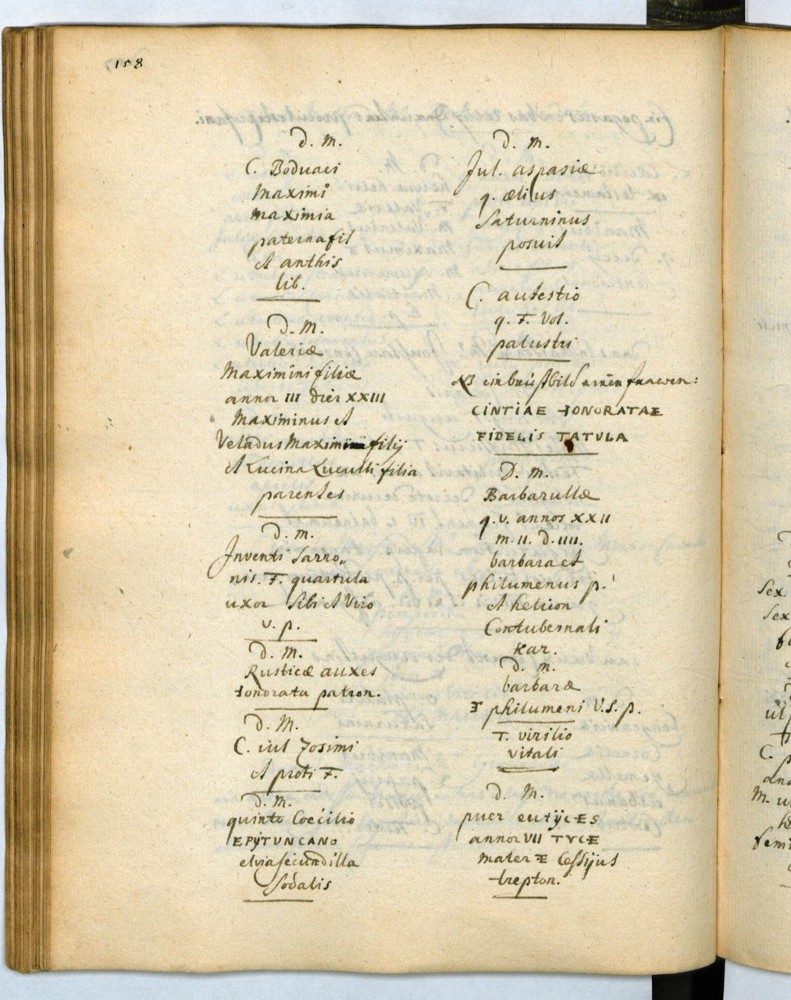 158
D. M.
C. Boduaci
Maximi
Maximia
paterna fil
et anthis
lib.
D. M.
Valeriæ
Maximini filiæ
annor III dier XXIII
Maximinus et
Veladus Maximini filij
et Lucina Luculli filia
parentes
D. M.
Inventi Sarro„
nis. F. quartula
uxor sibi et Viro
v. p.
D. M.
Rusticæ auxes
Honorata patron.
D. M.
C. iul Zosimi
et proti F.
D. M.
quinto Coecilio
EPŸTUNCANO
elvia secundilla
sodalis
D. M.
Jul. aspasiæ
q. ælius
Saturninus
posuit
C. autestio
q. F. Vol.
palustri
NB ein brustbild einen
CINTIAE HONORATAE
FIDELIS TATULA
D. M.
Barbarullæ
q. v. annos XXII
m. II. D. IIII.
barbara et
philumenus p.
et helicon
Contubernali
kar.
D. M.
barbaræ
philumeni V. S. p.
T. virilio
vitali
D. M.
puer eutÿcES
annor VII TYCE
mater E Cassijus
trepton.